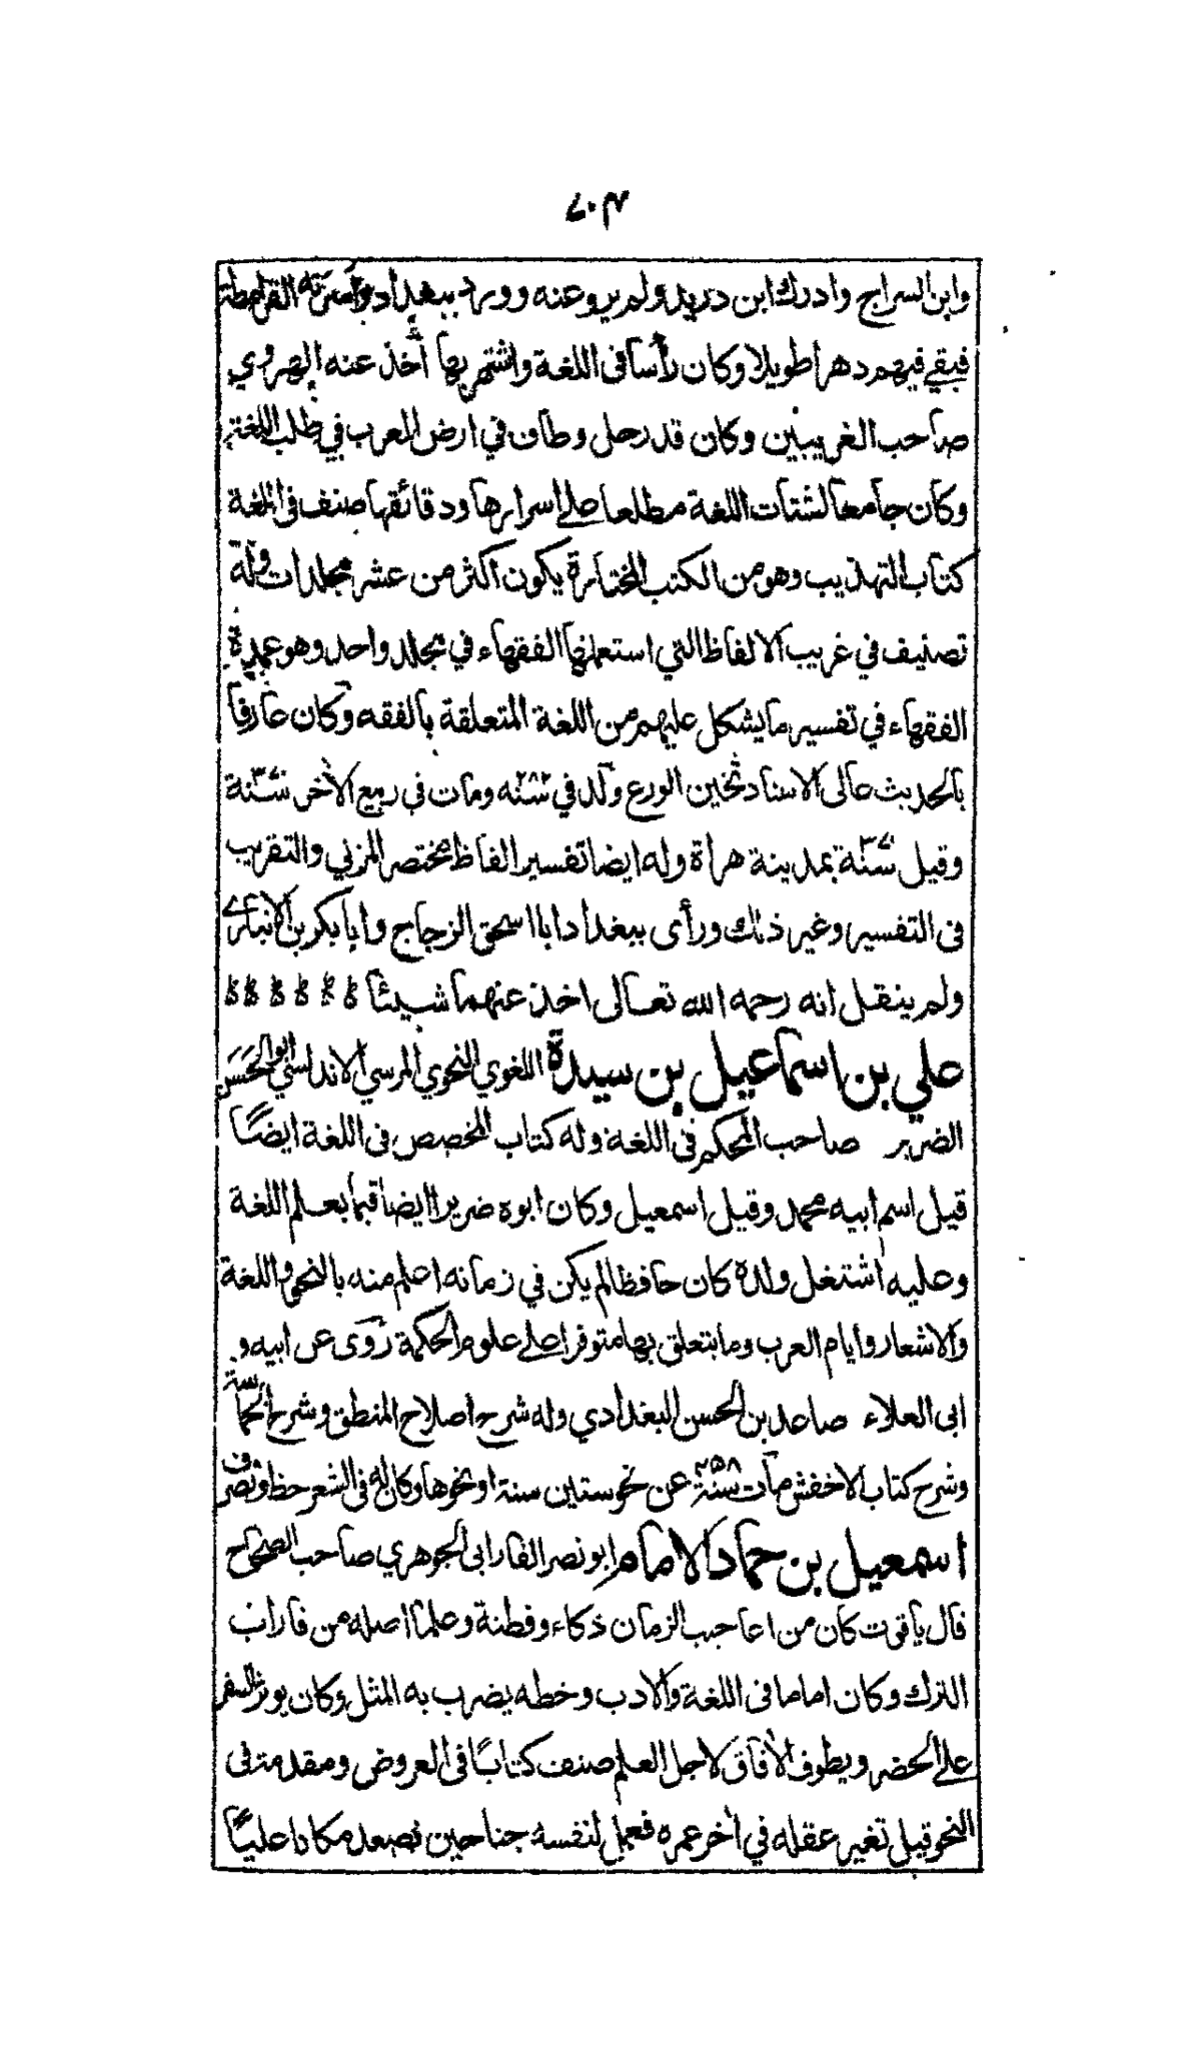 ٧٠٣
وابن السراج وادرك ابن دريد ولم يرو عنه وورد ببغداد واسرته القرامطة
فبقي فيهم دهرا طويلا وكان رأسا فى اللغة واشتهر بها أخذ عنه الهروي
صاحب الغريبين وكان قد رحل وطاف في ارض العرب في طلب اللغة
وكان جامعا لشتات اللغة مطلعا علے اسرارها ودقائقها صنف فى اللغة
كتاب التهذيب وهو من الكتب المختارة يكون اكثر من عشر مجلدات وله
تصنيف في غريب الالفاظ التي استعملها الفقهاء في مجلد واحد وهو عمدة
الفقهاء في تفسير ما يشكل عليهم من اللغة المتعلقة بالفقه وكان عارفا
بالحديث عالى الاسناد ثخين الورع ولد في سنة ٢٨٢ ومات في ربيع الأخر سنة ٣٧٠
وقيل سنة بمدينة هراة وله ايضا تفسير الفاظ مختصر المزني والتقريب
فى التفسير وغير ذلك ورأى ببغداد ابا اسحق الزجاج وابا بكر بن الانباري
ولم ينقل انه رحمه الله تعالى اخذ عنهما شيئا
علي بن اسماعيل بن سيدة اللغوي النحوي المرسي الاندلسي ابو الحسن
الضرير صاحب المحكم فى اللغة وله كتاب المخصص فى اللغة ايضًا
قيل اسم ابيه محمد وقيل اسمعيل وكان ابوه ضريرا ايضا قيما بعلم اللغة
وعليه اشتغل ولده كان حافظا لم يكن في زمانه اعلم منه بالنحو واللغة
والاشعار وايام العرب وما يتعلق بها متوفرا علے علوم الحكمة روى عن ابيه و
ابى العلاء صاعد بن الحسن البغدادي وله شرح اصلاح المنطق وشرح الحماسة
وشرح كتاب الاخفش مات سنة ٤٥٨ عن نحو ستين سنة او نحوها وكان له فى الشعر حظ وتصرف
اسمعيل بن حماد الامام ابو نصر الفارابى الجوهري صاحب الصحاح
قال ياقوت كان من اعاجيب الزمان ذكاء وفطنة وعلما اصله من فاراب
الترك وكان اماما فى اللغة والادب وخطه يضرب به المثل وكان يوثر السفر
علے الحضر ويطوف الأفاق لاجل العلم صنف كتابًا فى العروض ومقدمة فى
النحو قيل تغير عقله في أخر عمره فعمل لنفسه جناحين فصعد مكانا عليًا